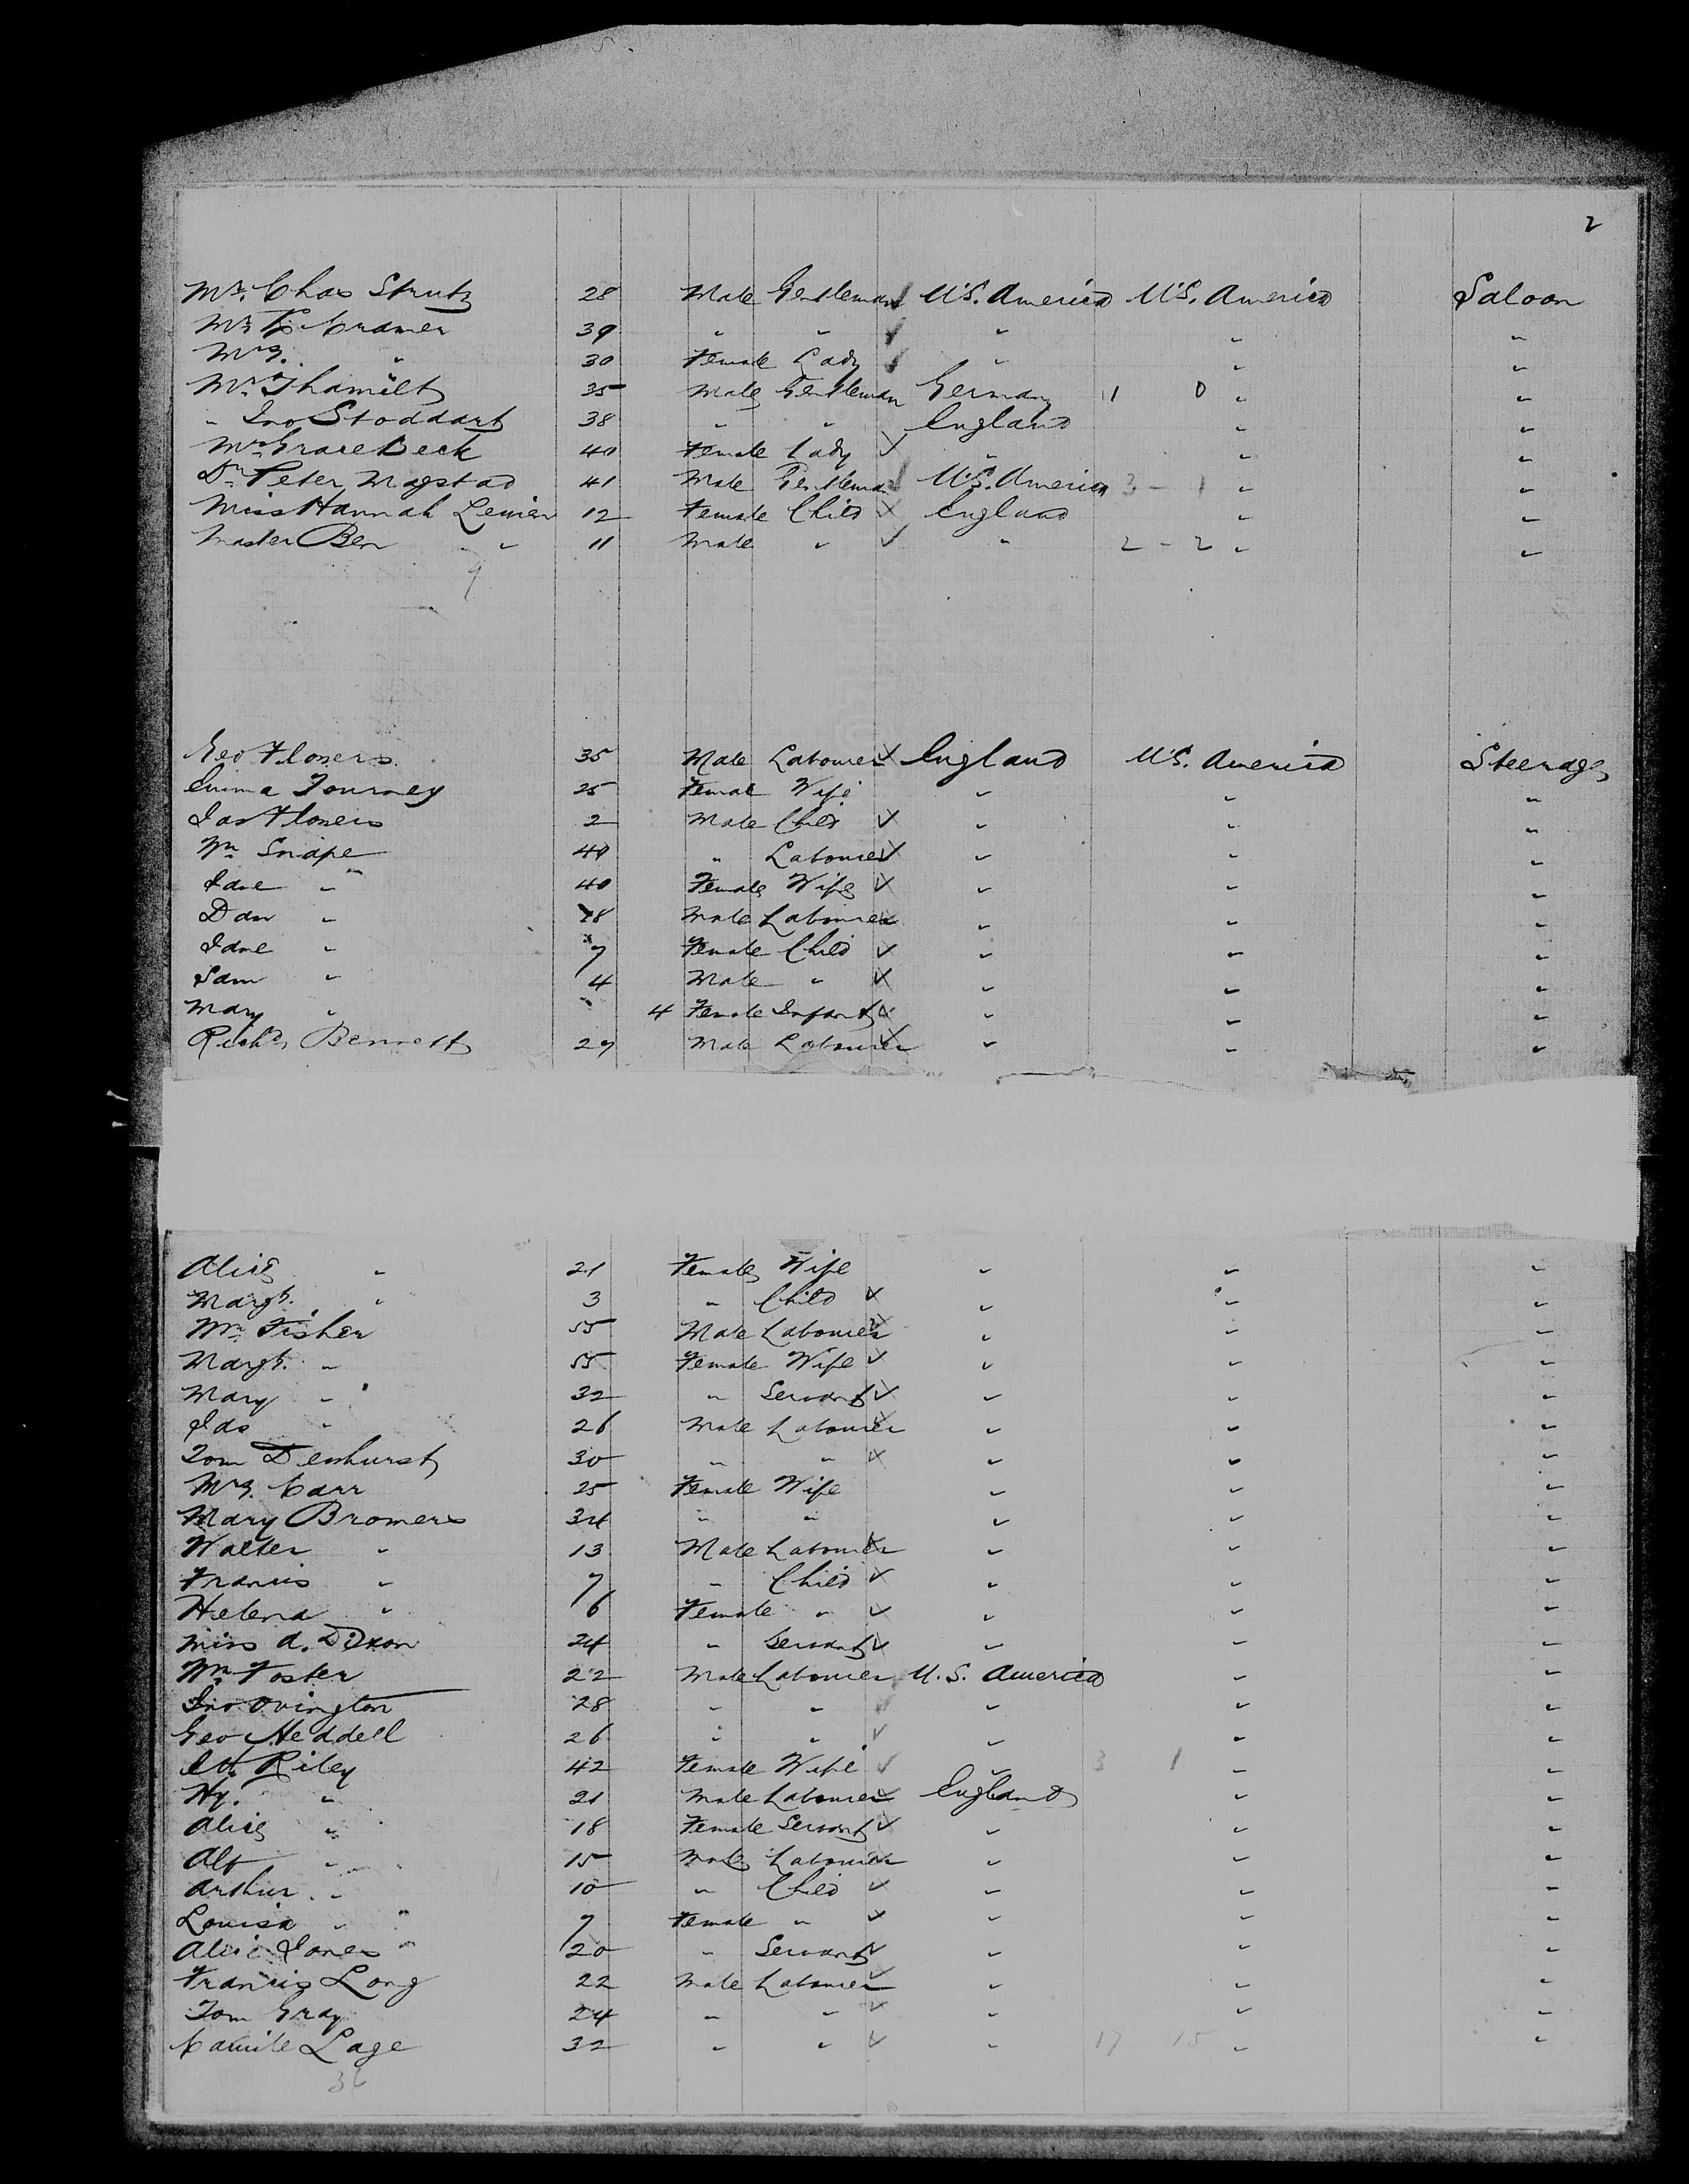 2
Mr. Chas Strutz 28 Male Gentleman U.S. America U.S. America Saloon
Mr Cramer 39 " " " " "
Mrs. " 30 Female Lady " " "
Mr. Male Gentleman Germany 1 0 " "
" Jno Stoddart 38 " " England " "
Mrs Grace Beck 40 Female Lady " " "
Dr Peter Magstad 41 Male Gentleman U.S. America 3 - 1 " "
Miss Hannah 12 Female Child England " "
Master Ben " 11 Male " " 2 - 2 " "
9
Geo Flowers 35 Male Labourer England U.S. America Steerage
Emma Tourney 25 Female Wife " " "
Jas Flowers 2 Male Child " " "
Wm Snape " Labourer " " "
Jane " 40 Female Wife " " "
Dan " 18 Male Labourer " " "
Jane " 7 Female Child " " "
Sam " 4 Male " " " "
Mary " 4 Female Infant " " "
Richd Bennett 29 Male Labourer " " "
Alice " 21 Female Wife " " "
Margt. " 3 " Child " " "
Wm Fisher 55 Male Labourer " " "
Margt. " 55 Female Wife " " "
Mary " 32 " Servant " " "
Jas " 26 Male Labourer " " "
Tom Dewhurst 30 " " " " "
Mrs. Carr 25 Female Wife " " "
Mary Bromers 34 " " " " "
Walter " 13 Male Labourer " " "
Francis " 7 " Child " " "
Helena " 6 Female " " " "
Miss A. Dixon 24 " Servant " " "
Wm Foster 22 Male Labourer U.S. America " "
Jno Ovington 28 " " " " "
Geo Heddell 26 " " " " "
Riley 42 Female Wife " 3 1 " "
Hy. " 21 Male Labourer England " "
Alice " 18 Female Servant " " "
Alf " 15 Male Labourer " " "
Arthur " 10 " Child " " "
Louisa " 7 Female " " " "
Alice Jones 20 " Servant " " "
Francis Long 22 Male Labourer " " "
Tom Gray 24 " " " " "
Camile Lage 32 " " " 17 15 " "
36